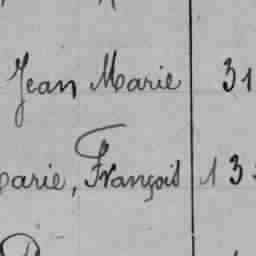 Jean Marie 31
arie, François 13